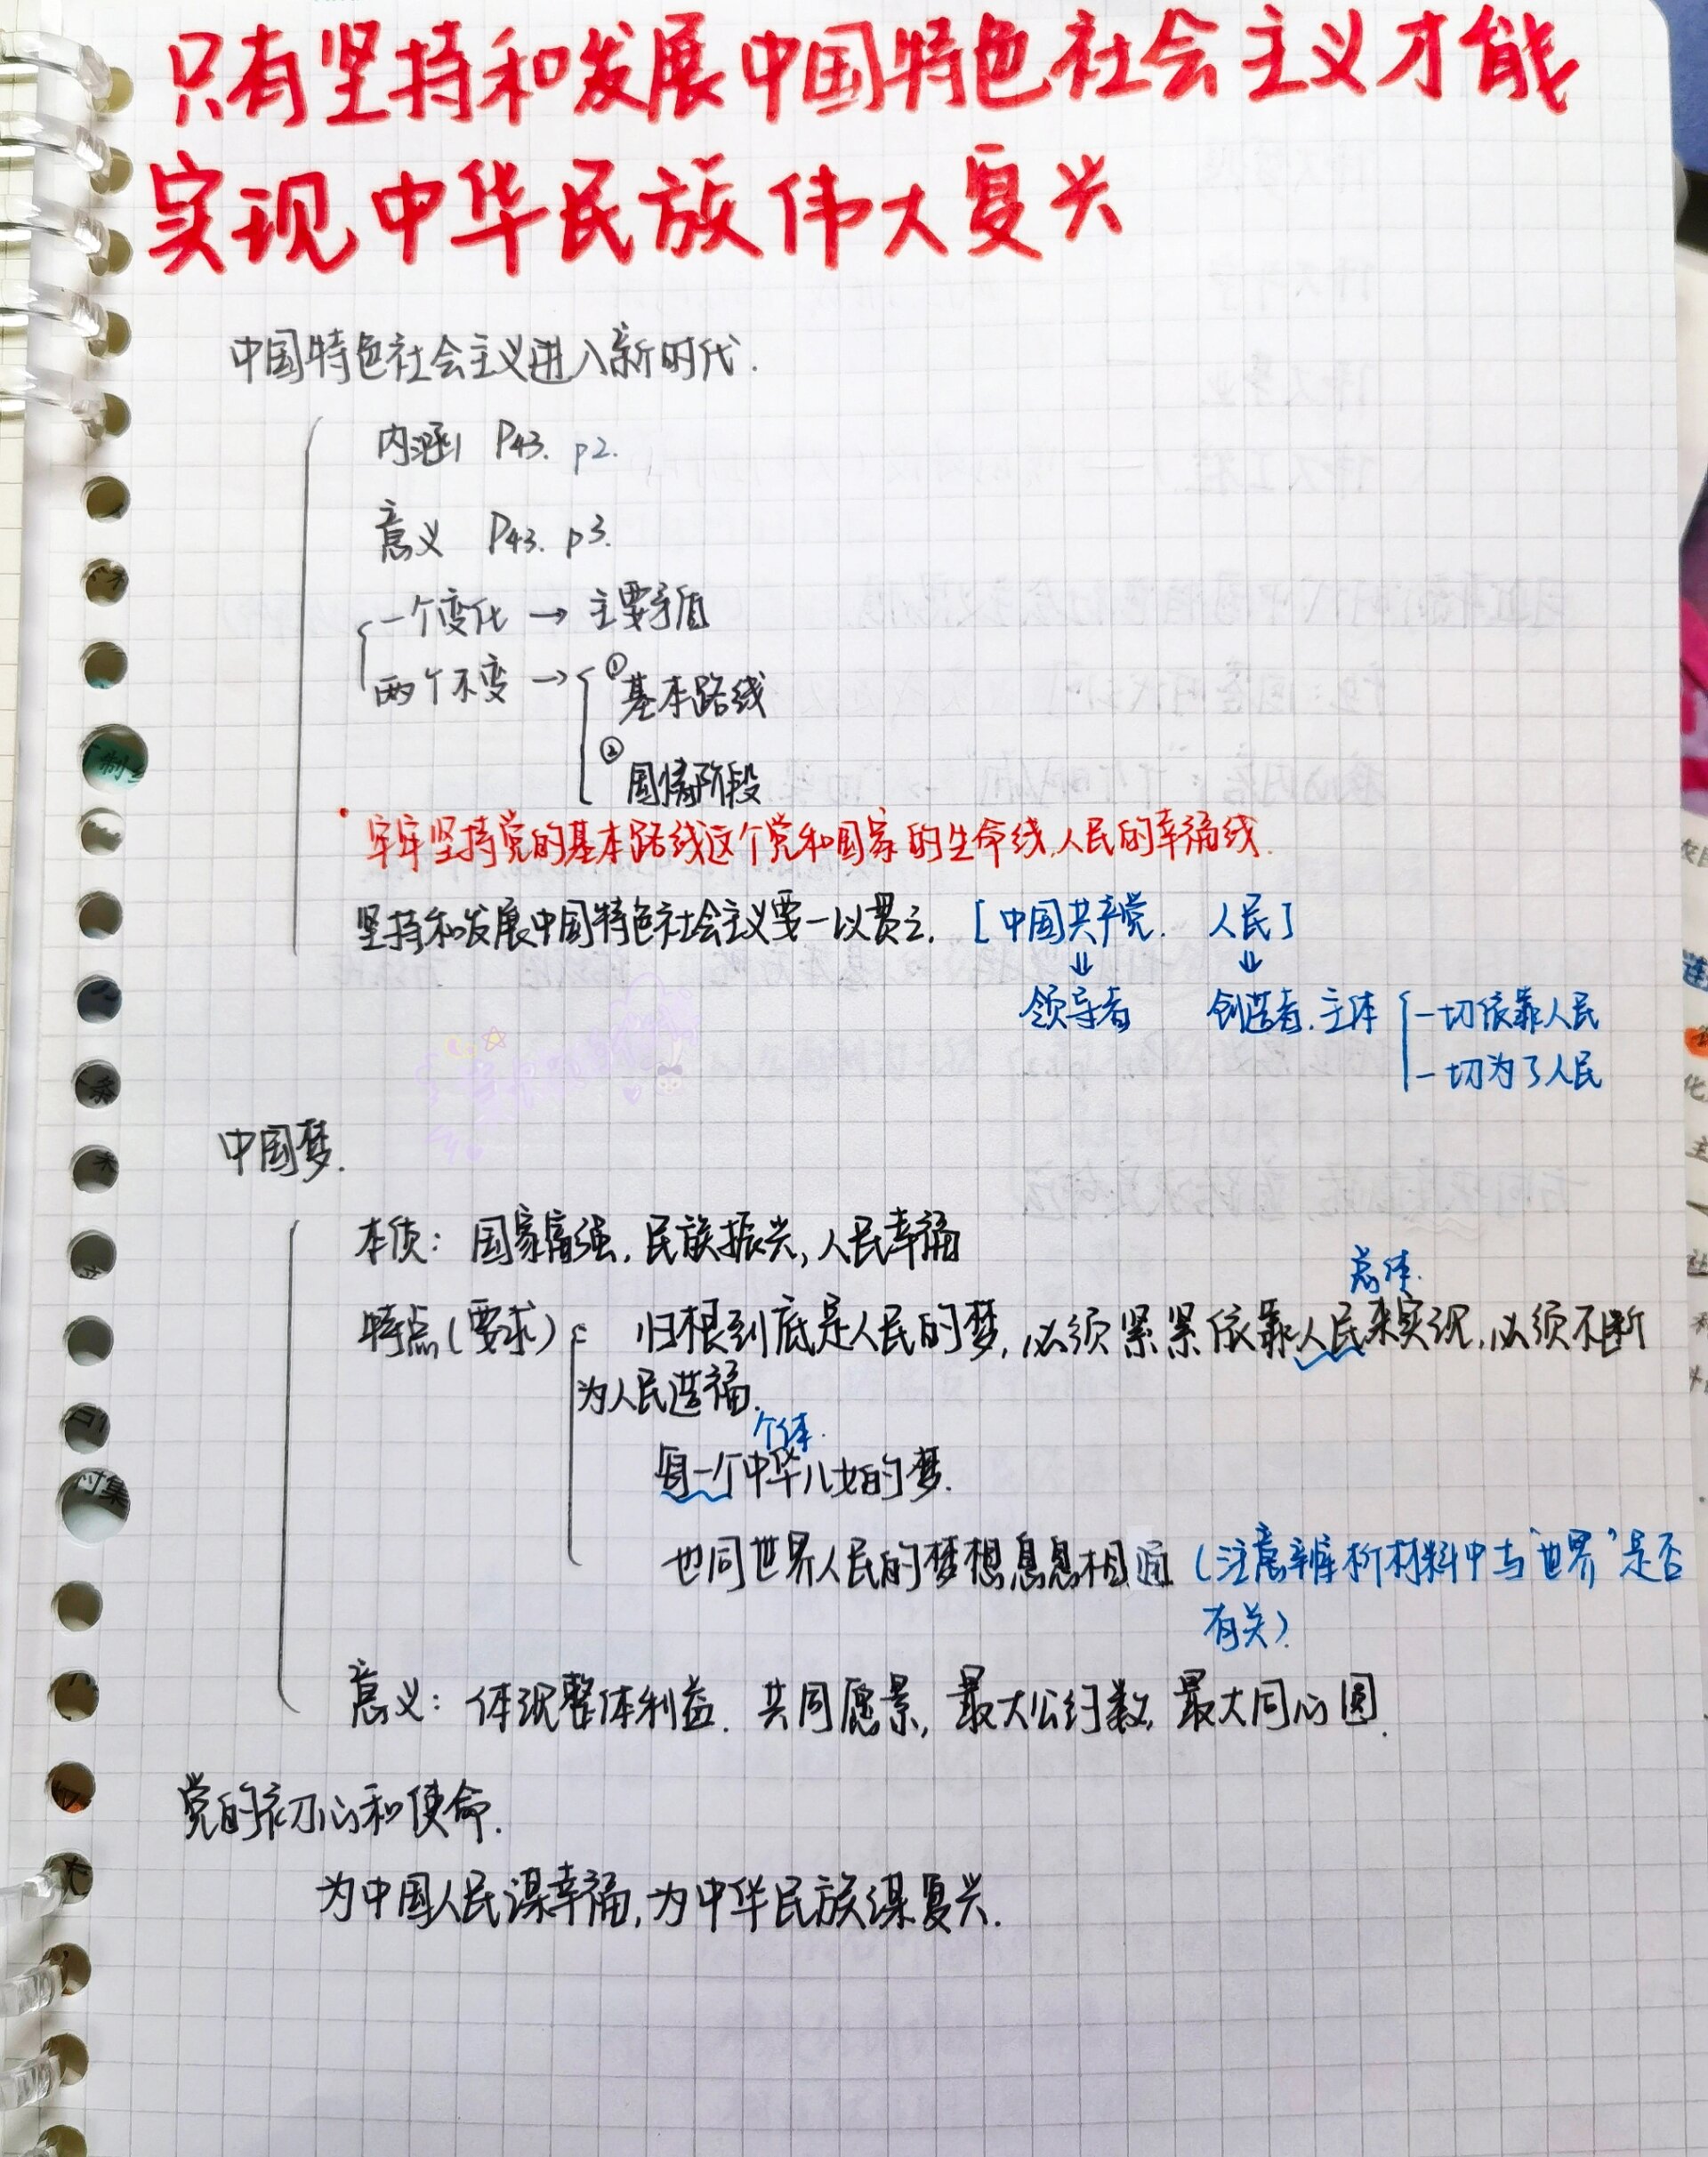 只有坚持和发展中国特色社会主义才能
实现中华民族伟大复兴
中国特色社会主义进入新时代.
内涵 P43. p2.
意义 P43. p3.
一个变化 → 主要矛盾
两个不变 → ① 基本路线
② 国情阶段
牢牢坚持党的基本路线这个党和国家的生命线,人民的幸福线.
坚持和发展中国特色社会主义要一以贯之. [中国共产党. 人民]
⇓ ⇓
领导者 创造者.主体 一切依靠人民
一切为了人民
中国梦.
本质: 国家富强,民族振兴,人民幸福
总体.
特点(要求) 归根到底是人民的梦,必须紧紧依靠人民来实现,必须不断
为人民造福.
个体.
每一个中华儿女的梦.
也同世界人民的梦想息息相通 (注意辨析材料中与“世界”是否
有关).
意义: 体现整体利益. 共同愿景, 最大公约数, 最大同心圆.
党的初心和使命.
为中国人民谋幸福,为中华民族谋复兴.